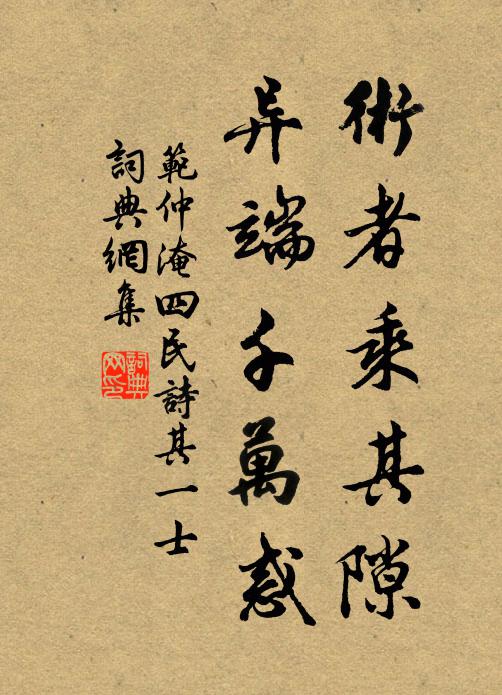 術者乘其隙
异端千萬惑
範仲淹四民詩其一士
詞典網集
詞典网印